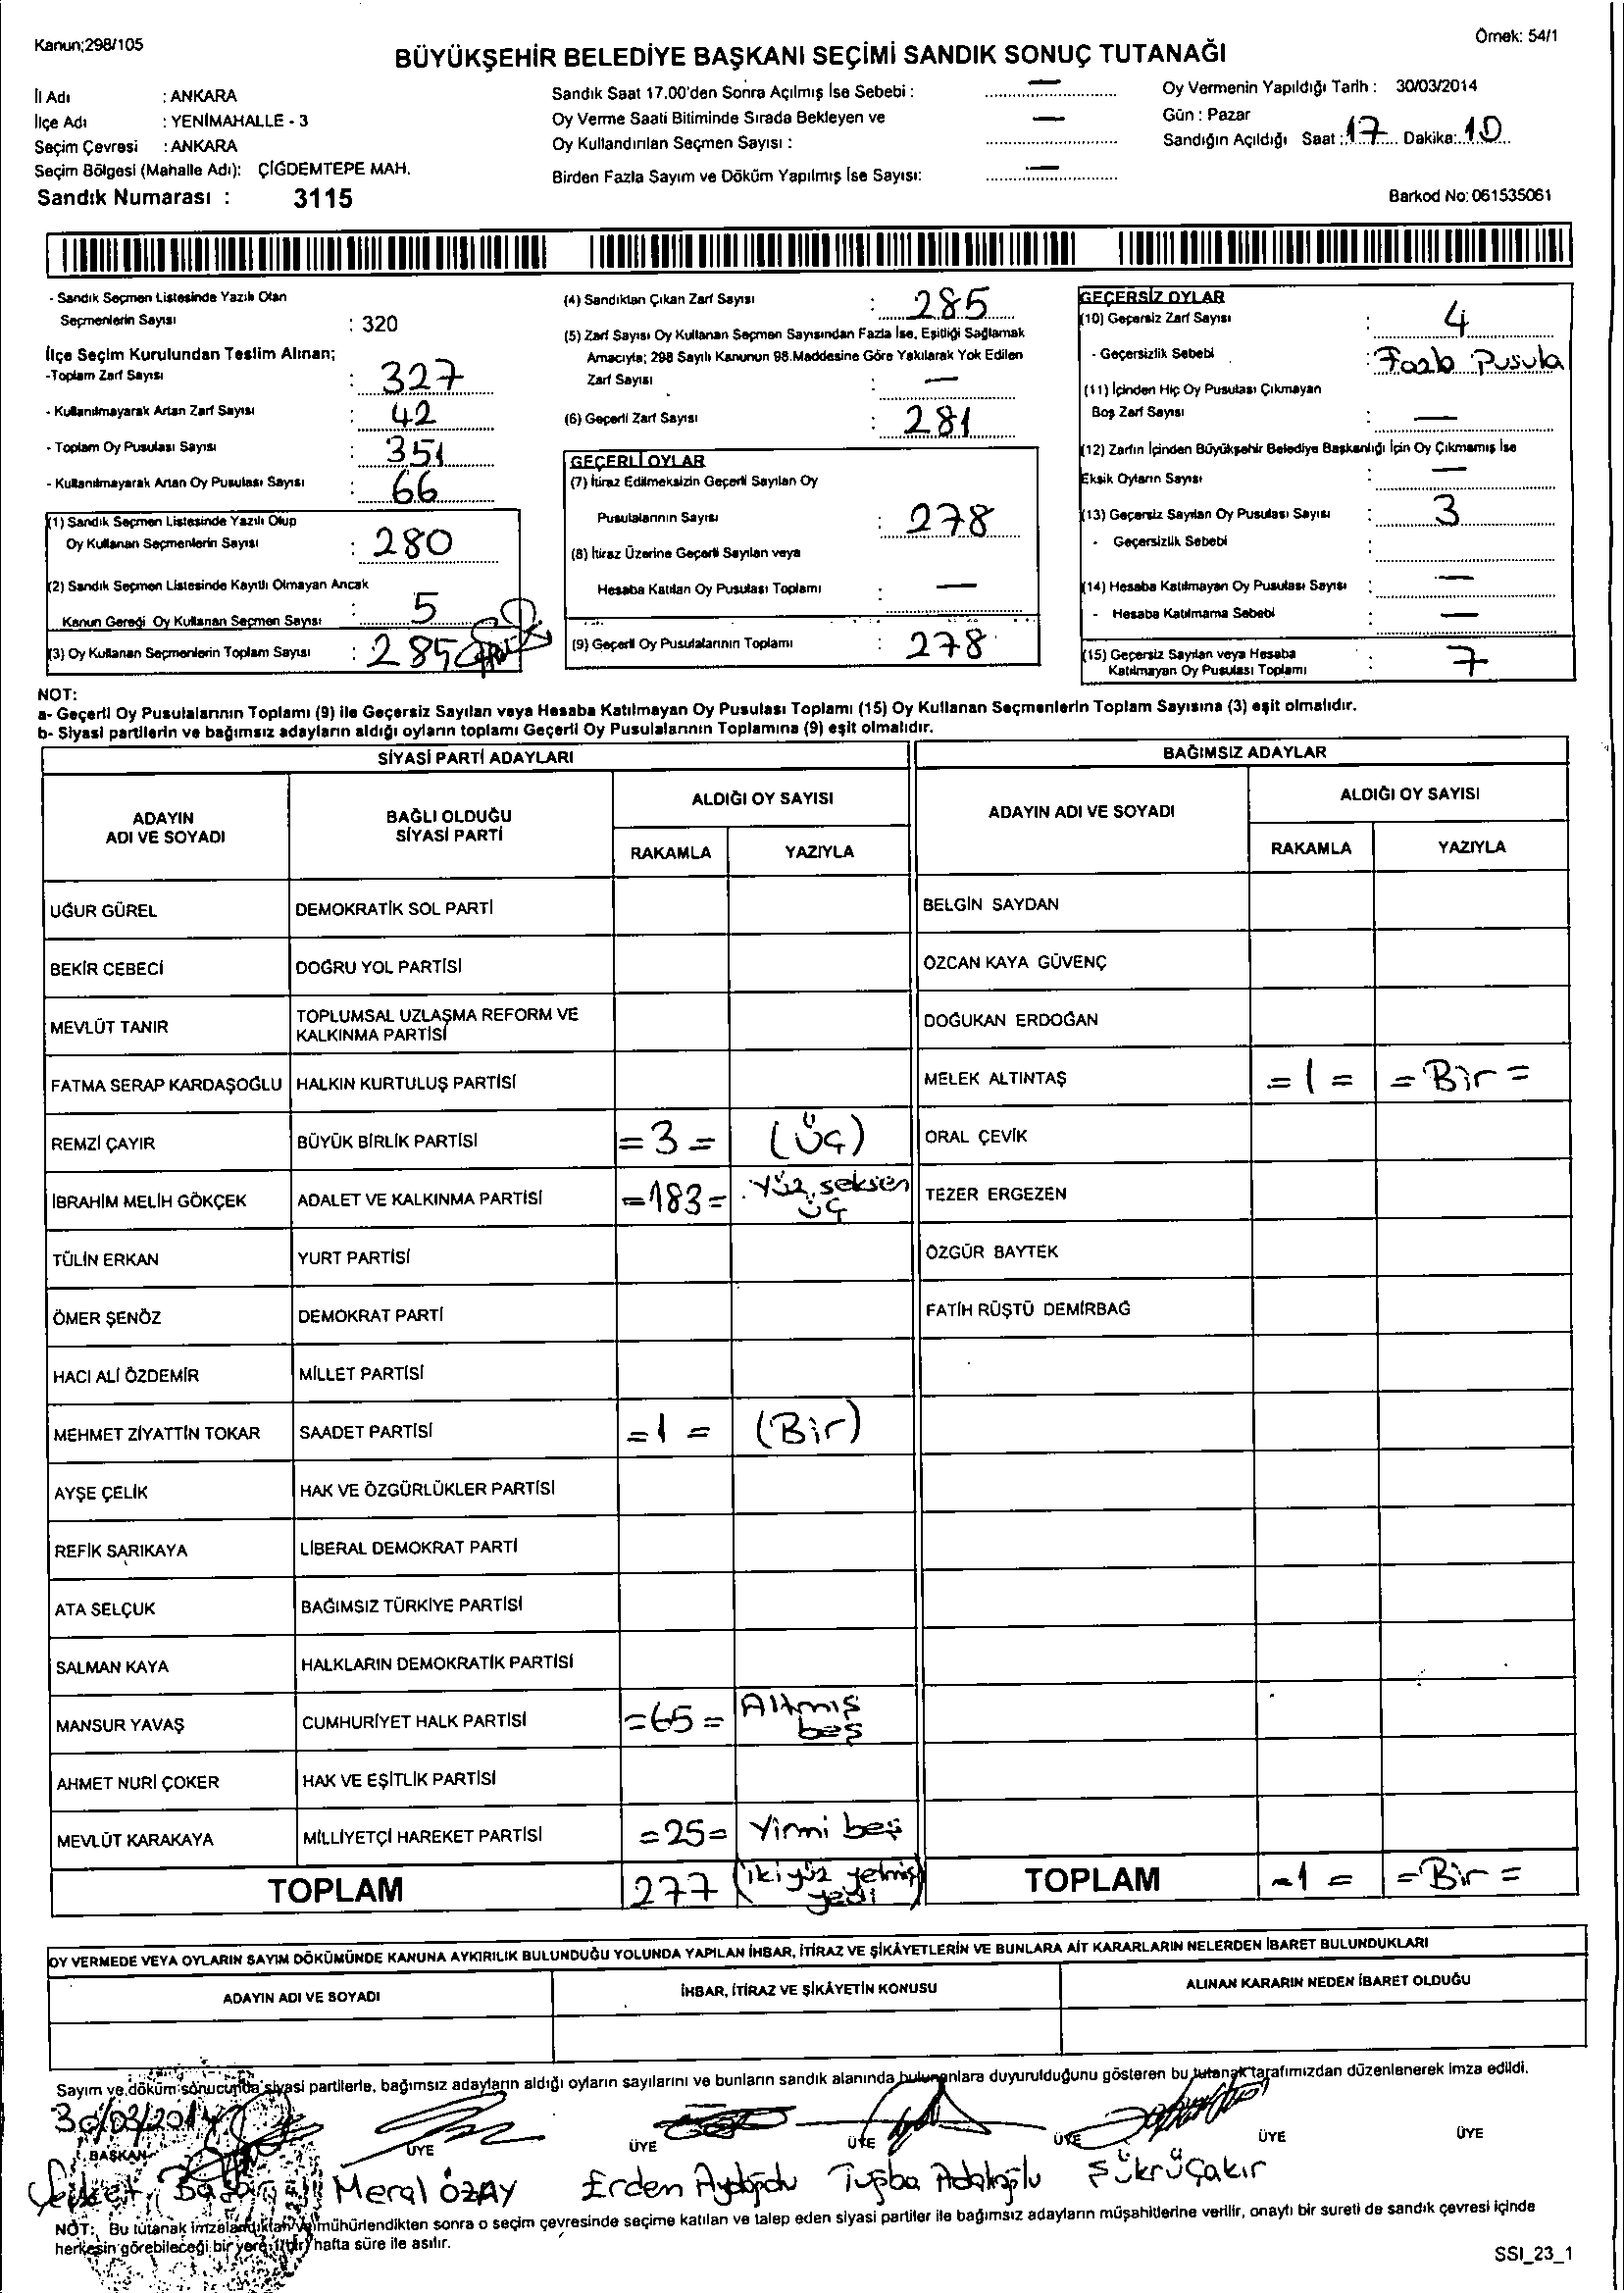 Kanun;298/105
Örnek: 54/1
BÜYÜKŞEHİR BELEDİYE BAŞKANI SEÇİMİ SANDIK SONUÇ TUTANAĞI
İl Adı : ANKARA
İlçe Adı : YENİMAHALLE - 3
Seçim Çevresi : ANKARA
Seçim Bölgesi (Mahalle Adı): ÇİĞDEMTEPE MAH.
Sandık Numarası : 3115
Sandık Saat 17.00'den Sonra Açılmış İse Sebebi : —
Oy Verme Saati Bitiminde Sırada Bekleyen ve
Oy Kullandırılan Seçmen Sayısı : —
Birden Fazla Sayım ve Döküm Yapılmış İse Sayısı: —
Oy Vermenin Yapıldığı Tarih : 30/03/2014
Gün : Pazar
Sandığın Açıldığı Saat : 17 Dakika: 10
Barkod No: 061535061
- Sandık Seçmen Listesinde Yazılı Olan
Seçmenlerin Sayısı : 320
İlçe Seçim Kurulundan Teslim Alınan;
-Toplam Zarf Sayısı : 327
- Kullanılmayarak Artan Zarf Sayısı : 42
- Toplam Oy Pusulası Sayısı : 351
- Kullanılmayarak Artan Oy Pusulası Sayısı : 66
(1) Sandık Seçmen Listesinde Yazılı Olup
Oy Kullanan Seçmenlerin Sayısı : 280
(2) Sandık Seçmen Listesinde Kayıtlı Olmayan Ancak
Kanun Gereği Oy Kullanan Seçmen Sayısı : 5
(3) Oy Kullanan Seçmenlerin Toplam Sayısı : 285
(4) Sandıktan Çıkan Zarf Sayısı : 285
(5) Zarf Sayısı Oy Kullanan Seçmen Sayısından Fazla İse, Eşitliği Sağlamak
Amacıyla; 298 Sayılı Kanunun 98.Maddesine Göre Yakılarak Yok Edilen
Zarf Sayısı : —
(6) Geçerli Zarf Sayısı : 281
GEÇERLİ OYLAR
(7) İtiraz Edilmeksizin Geçerli Sayılan Oy
Pusulalarının Sayısı : 278
(8) İtiraz Üzerine Geçerli Sayılan veya
Hesaba Katılan Oy Pusulası Toplamı : —
(9) Geçerli Oy Pusulalarının Toplamı : 278
GEÇERSİZ OYLAR
(10) Geçersiz Zarf Sayısı : 4
- Geçersizlik Sebebi : Fazla Pusula
(11) İçinden Hiç Oy Pusulası Çıkmayan
Boş Zarf Sayısı : —
(12) Zarfın İçinden Büyükşehir Belediye Başkanlığı İçin Oy Çıkmamış İse
Eksik Oyların Sayısı : —
(13) Geçersiz Sayılan Oy Pusulası Sayısı : 3
- Geçersizlik Sebebi :
(14) Hesaba Katılmayan Oy Pusulası Sayısı : —
- Hesaba Katılmama Sebebi : —
(15) Geçersiz Sayılan veya Hesaba
Katılmayan Oy Pusulası Toplamı : 7
NOT:
a- Geçerli Oy Pusulalarının Toplamı (9) ile Geçersiz Sayılan veya Hesaba Katılmayan Oy Pusulası Toplamı (15) Oy Kullanan Seçmenlerin Toplam Sayısına (3) eşit olmalıdır.
b- Siyasi partilerin ve bağımsız adayların aldığı oyların toplamı Geçerli Oy Pusulalarının Toplamına (9) eşit olmalıdır.
SİYASİ PARTİ ADAYLARI BAĞIMSIZ ADAYLAR
ADAYIN
ADI VE SOYADI
BAĞLI OLDUĞU
SİYASİ PARTİ
ALDIĞI OY SAYISI
RAKAMLA YAZIYLA
ADAYIN ADI VE SOYADI
ALDIĞI OY SAYISI
RAKAMLA YAZIYLA
UĞUR GÜREL DEMOKRATİK SOL PARTİ BELGİN SAYDAN
BEKİR CEBECİ DOĞRU YOL PARTİSİ ÖZCAN KAYA GÜVENÇ
MEVLÜT TANIR TOPLUMSAL UZLAŞMA REFORM VE
KALKINMA PARTİSİ DOĞUKAN ERDOĞAN
FATMA SERAP KARDAŞOĞLU HALKIN KURTULUŞ PARTİSİ MELEK ALTINTAŞ =1= =Bir=
REMZİ ÇAYIR BÜYÜK BİRLİK PARTİSİ =3= (Üç) ORAL ÇEVİK
İBRAHİM MELİH GÖKÇEK ADALET VE KALKINMA PARTİSİ =183= Yüz seksen
üç TEZER ERGEZEN
TÜLİN ERKAN YURT PARTİSİ ÖZGÜR BAYTEK
ÖMER ŞENÖZ DEMOKRAT PARTİ FATİH RÜŞTÜ DEMİRBAĞ
HACI ALİ ÖZDEMİR MİLLET PARTİSİ
MEHMET ZİYATTİN TOKAR SAADET PARTİSİ =1= (Bir)
AYŞE ÇELİK HAK VE ÖZGÜRLÜKLER PARTİSİ
REFİK SARIKAYA LİBERAL DEMOKRAT PARTİ
ATA SELÇUK BAĞIMSIZ TÜRKİYE PARTİSİ
SALMAN KAYA HALKLARIN DEMOKRATİK PARTİSİ
MANSUR YAVAŞ CUMHURİYET HALK PARTİSİ =65= Altmış
beş
AHMET NURİ ÇOKER HAK VE EŞİTLİK PARTİSİ
MEVLÜT KARAKAYA MİLLİYETÇİ HAREKET PARTİSİ =25= Yirmi beş
TOPLAM 277 (iki yüz yetmiş
yedi) TOPLAM =1= =Bir=
OY VERMEDE VEYA OYLARIN SAYIM DÖKÜMÜNDE KANUNA AYKIRILIK BULUNDUĞU YOLUNDA YAPILAN İHBAR, İTİRAZ VE ŞİKÂYETLERİN VE BUNLARA AİT KARARLARIN NELERDEN İBARET BULUNDUKLARI
ADAYIN ADI VE SOYADI İHBAR, İTİRAZ VE ŞİKÂYETİN KONUSU ALINAN KARARIN NEDEN İBARET OLDUĞU
Sayım ve döküm sonucunda siyasi partilerle, bağımsız adayların aldığı oyların sayılarını ve bunların sandık alanında bulunanlara duyurulduğunu gösteren bu tutanak tarafımızdan düzenlenerek imza edildi.
30/03/2014
BAŞKAN ÜYE ÜYE ÜYE ÜYE ÜYE ÜYE
Meral ÖZAY Erden Tuğba Şükrü Çakır
NOT: Bu tutanak imzalandıktan ve mühürlendikten sonra o seçim çevresinde seçime katılan ve talep eden siyasi partiler ile bağımsız adayların müşahitlerine verilir, onaylı bir sureti de sandık çevresi içinde
herkesin görebileceği bir yere 1 (bir) hafta süre ile asılır.
SSI_23_1